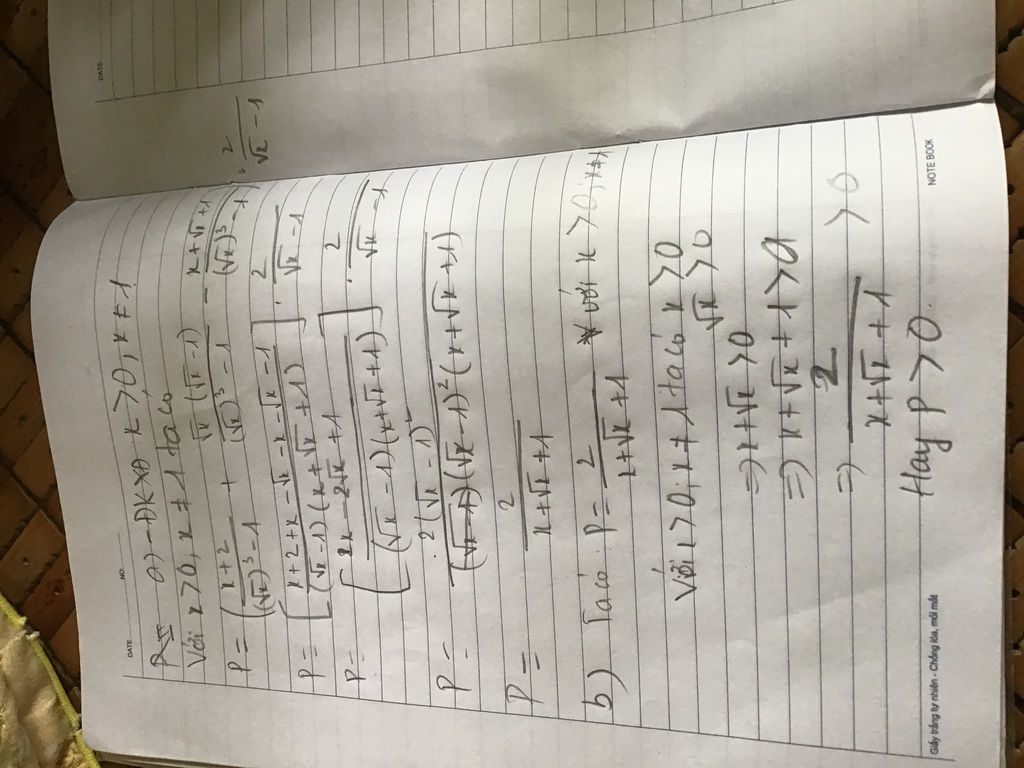 DATE
DATE NO.
Bài a) - ĐKXĐ x > 0, x ≠ 1
Với x > 0, x ≠ 1 ta có
P = (x+2/(√x)³-1 + √x(√x-1)/(√x)³-1 - x+√x+1/(√x)³-1) : 2/√x-1
P = [x+2+x-√x-x-√x-1/(√x-1)(x+√x+1)] . 2/√x-1
P = [2x-2√x+1/(√x-1)(x+√x+1)] . 2/√x-1
P = 2(√x-1)²/(√x-1)(√x-1)²(x+√x+1)
P = 2/x+√x+1
b) Ta có P = 2/x+√x+1 với x > 0, x≠1
Với x > 0; x ≠ 1 ta có x > 0
√x > 0
=> x+√x > 0
=> x+√x+1 > 0
=> 2/x+√x+1 > 0
Hay P > 0.
Giấy trắng tự nhiên - Chống lóa, mỏi mắt NOTE BOOK